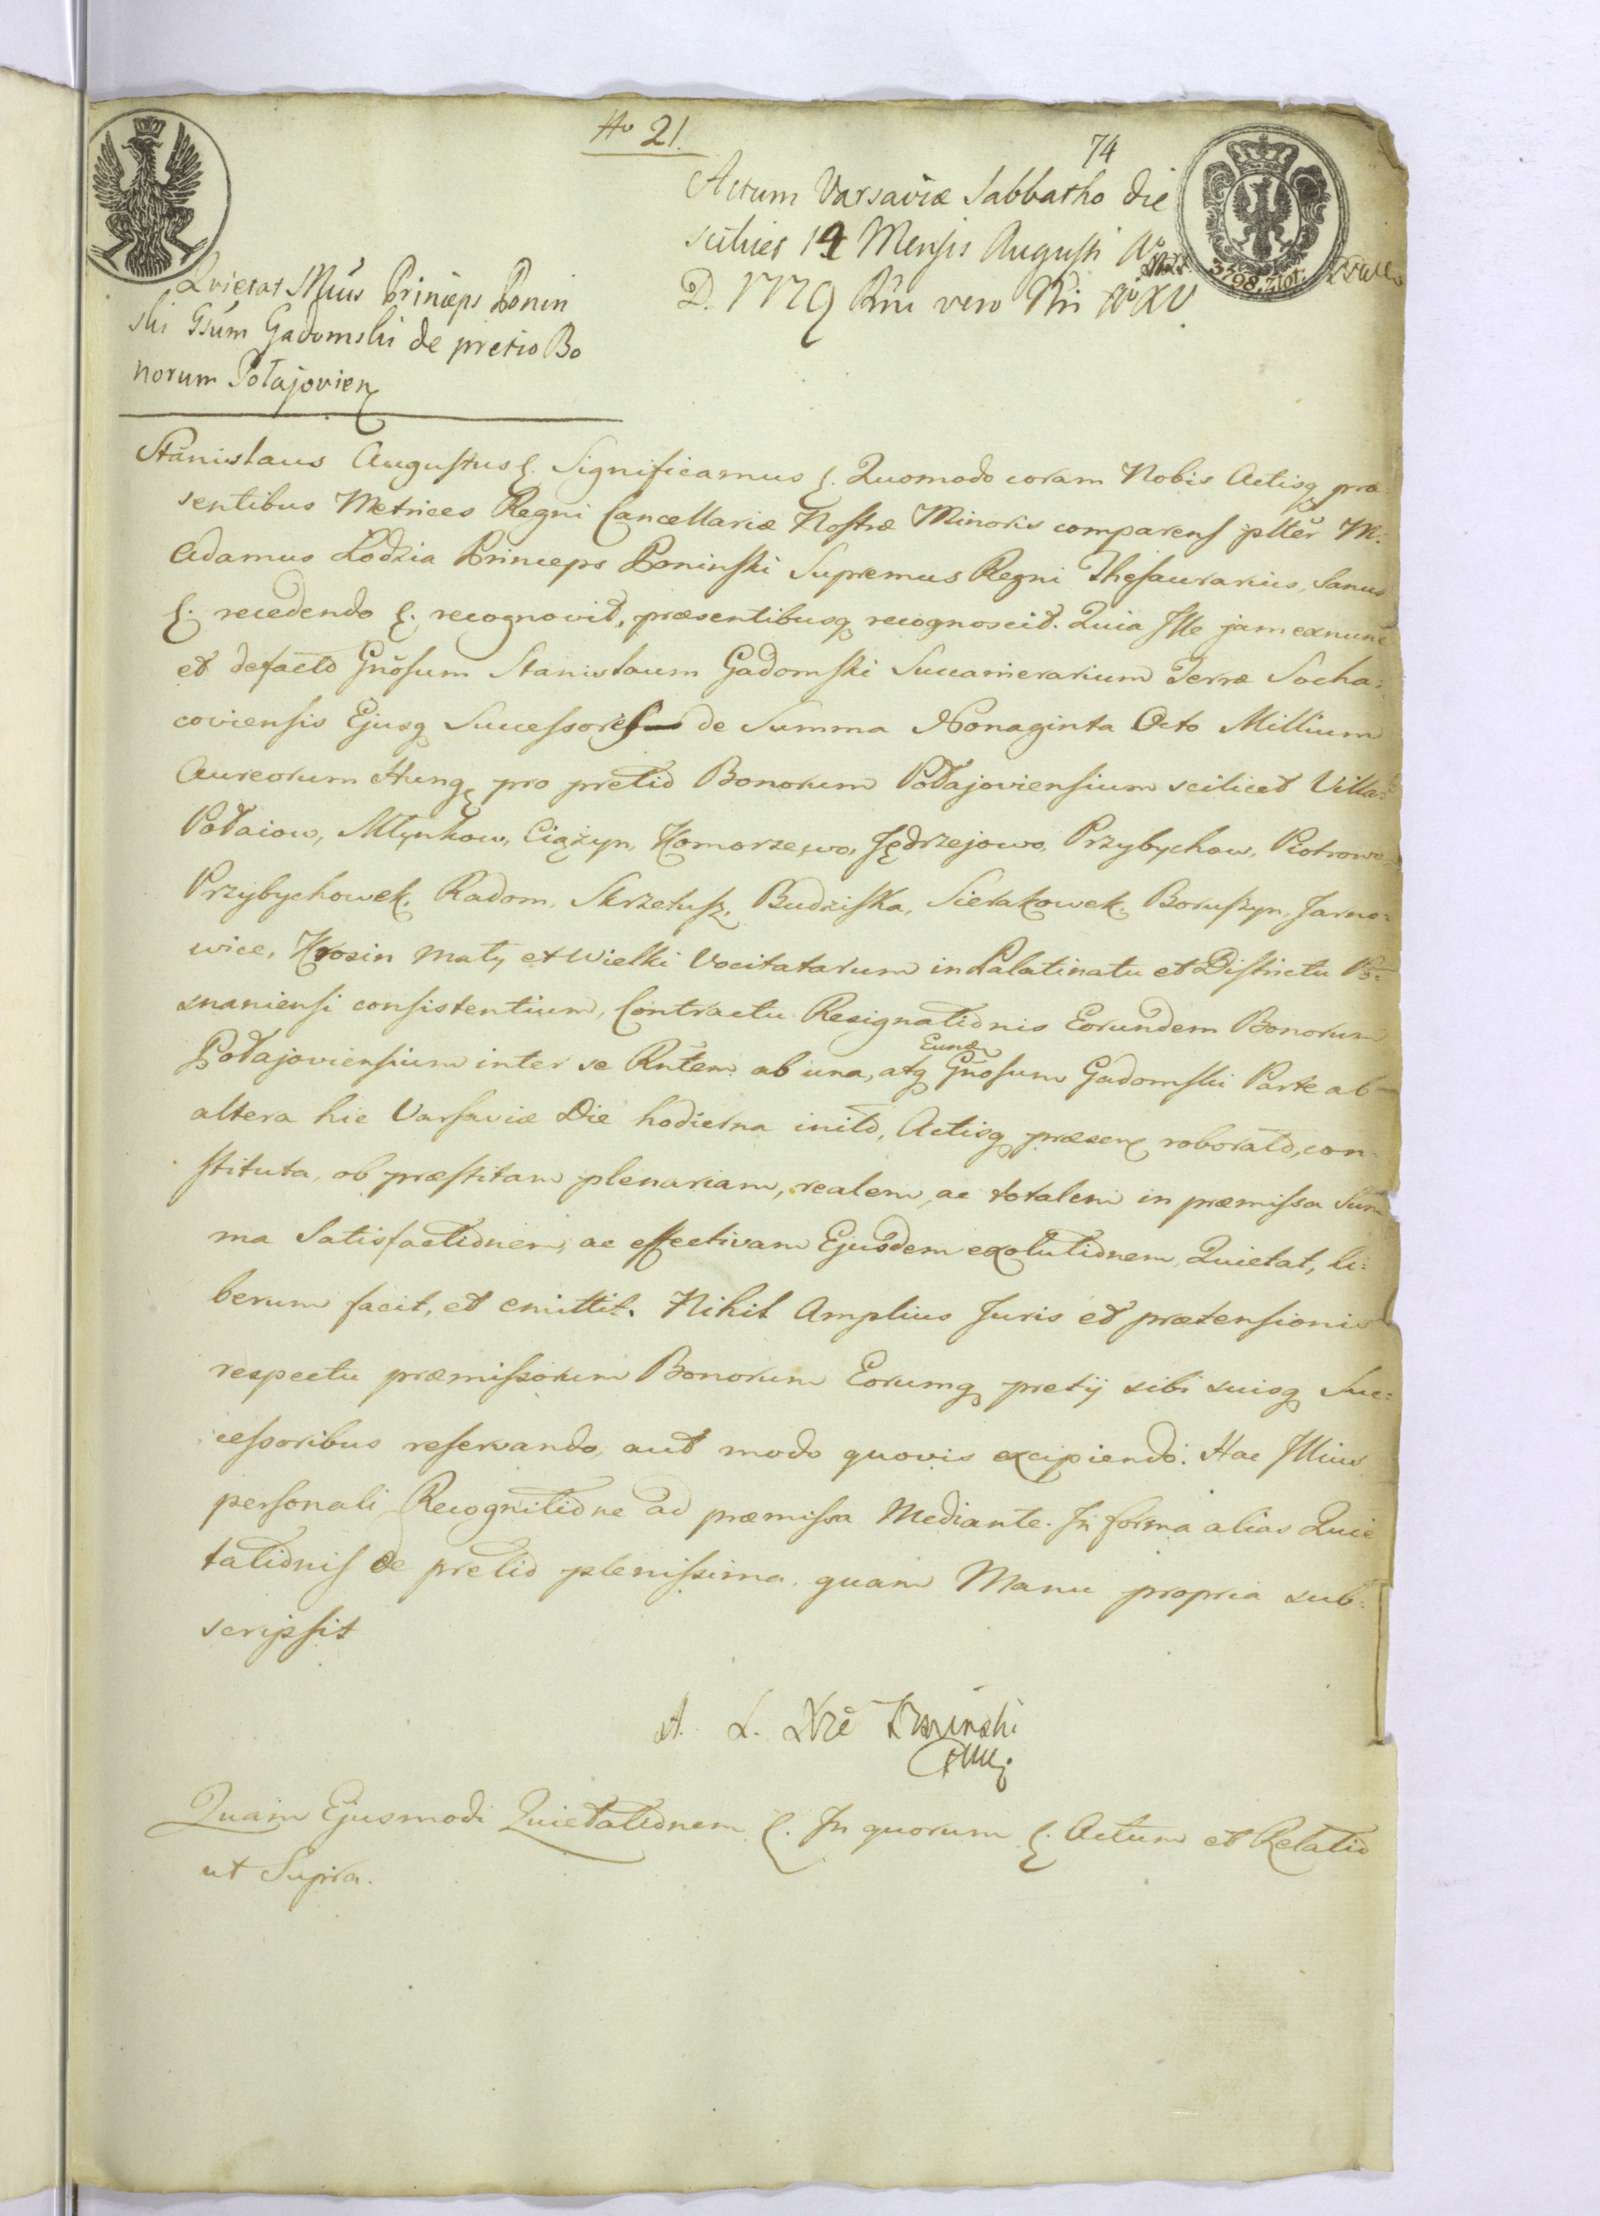 No 21.
74
Actum Varsaviæ Sabbatho die
scilicet 14 Mensis Augusti Ao
D. 1779 Rni vero Nri Ao XV
3798. Zlot.
Quietat Mcus Princeps Ponin
ski Gsum Gadomski de pretio Bo
norum Połajovien
Stanislaus Augustus &. Significamus &. Quomodo coram Nobis Actisq præ
sentibus Metrices Regni Cancellariæ Nostræ Minoris comparens pltter M.
Adamus Łodzia Princeps Poninski Supremus Regni Thesaurarius, Sanus
&. recedendo &. recognovit, præsentibusq recognoscit. Quia Ille jam exnunc
et defacto Gnosum Stanislaum Gadomski Succamerarium Terræ Socha:
coviensis Ejusq Successores de Summa Nonaginta Octo Millium
Aureorum Hung pro pretio Bonorum Połajoviensium scilicet Villa:
Połaiow, Młynkow, Ciążyn, Komorzewo, Jędrzejowo, Przybychow, Piotrowo
Przybychowek, Radom, Skrzetusz, Budziska, Sierakowek, Boruszyn, Jarno=
wice, Krosin mały et Wielki Vocitatarum in Palatinatu et Districtu Po=
snaniensi consistentium, Contractu Resignationis Eorundem Bonorum
Połajoviensium inter se Rntem ab una, atq Eundem Gnosum Gadomski Parte ab
altera hic Varsaviæ Die hodierna inito, Actisq præsen roborato, con=
stituta, ob præstitam plenariam, realem, ac totalem in præmissa Sum
ma Satisfactionem, ac effectivam Ejusdem exolutionem, Quietat, li=
berum facit, et emittit. Nihil Amplius Juris et prætensionis
respectu præmissorum Bonorum Eorumq pretij sibi suisq Suc=
cessoribus reservando, aut modo quovis excipiendo. Hac Illius
personali Recognitione ad præmissa Mediante. In forma alias Quie
tationis de pretio plenissima, quam Manu propria sub=
scripsit
A. Ł. Xże Poninski
Quam Ejusmodi Quietationem &. In quorum &. Actum et Relatio
ut Supra.